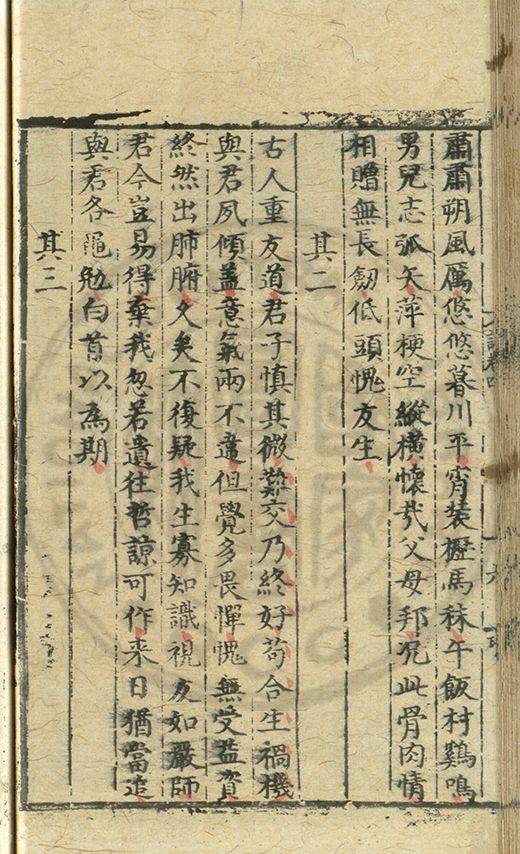 肅肅朔風厲悠悠暮川平宵装櫪馬秣午飯村鷄鳴
男兒志弧矢萍梗空縱橫懷哉父母邦况此骨肉情
相贈無長劒低頭愧友生
其二
古人重友道君子慎其微難交乃終好苟合生禍機
與君夙傾盖意氣兩不違但覺多畏憚愧無受益資
終然出肺腑久矣不復疑我生寡知識視友如嚴師
君今豈易得棄我忽若遺往哲諒可作来日猶當追
與君各黽勉白首以為期
其三